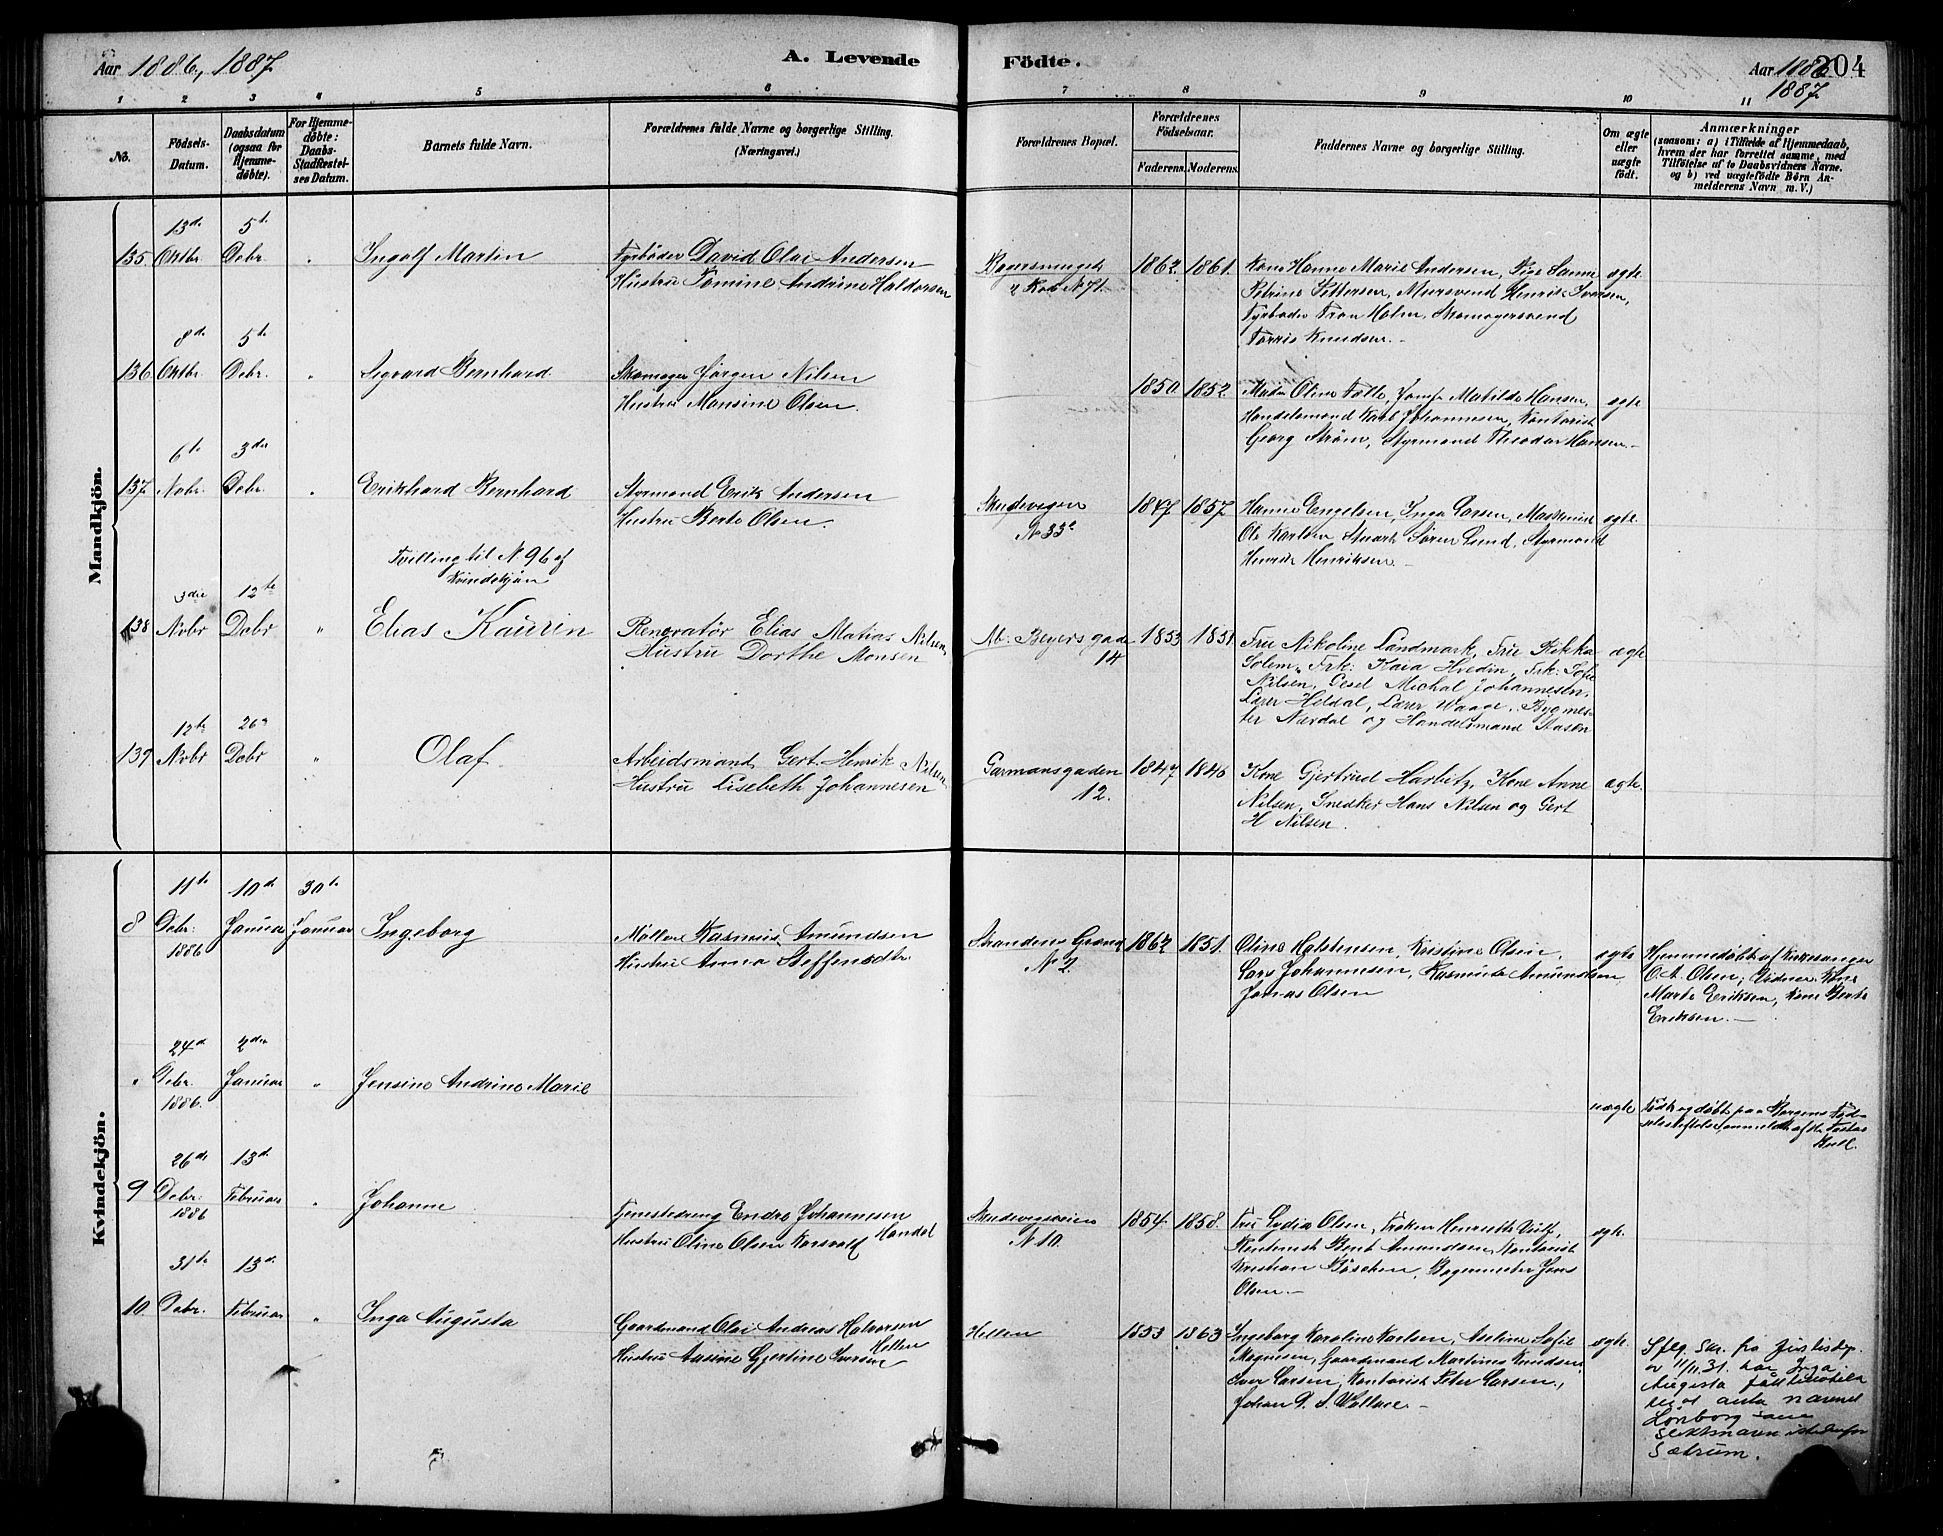 Aar 1886, 1887
A. Levende
Födte.
Aar 1886
204
1887
1 2 3 4 5 6 7 8 9 10 11
No.
Födsels-
Datum.
Daabsdatum
(ogsaa for
Hjemme-
döbte).
For Hjemme-
döbte:
Daabs-
Stadfæstel-
ses Datum.
Barnets fulde Navn.
Forældrenes fulde Navne og borgerlige Stilling.
(Næringsvei.)
Forældrenes Bopæl.
Forældrenes
Födselsaar.
Faderens. Moderens.
Faddernes Navne og borgerlige Stilling.
Om ægte
eller
uægte
födt.
Anmærkninger
(saasom: a) i Tilfælde af Hjemmedaab,
hvem der har forrettet samme, med
Tilföielse af to Daabsvidners Navne.
og b) ved uægtefödte Börn An-
melderens Navn m. V.)
Mandkjön.
13de 5te
135. Oktbr. Debr. " Ingolf Martin
Fyrbøder David Olai Andersen
Hustru Tomine Andrine Haldorsen
No 71.
1862. 1861.
Kone Hanne Marie Andersen, Pige Sanne
Petrine Pettersen, Muursvend Henrik Iversen,
Fyrbøder Holm, Skomagersvend
Knudsen.
ægte
8de 5te
136. Oktbr. Debr. " Sigvard Bernhard.
Skomager Jørgen Nilsen
Hustru Monsine Olsen.
1850. 1852.
Oline Jomfr Matilde Hansen,
Handelsmand Karl Johannesen, Kontorist
Georg Strøm, Styrmand Theodor Hansen.
ægte
6te 3die
137. Nobr. Debr. " Erikhard Bernhard
Styrmand Erik Andersen
Hustru Berte Olsen.
Skudevigen
No 33c
1847 1857.
Hanne Engelsen, Inga Larsen, Maskinist
Ole Karlsen Søren Lund, Styrmand
Henrik Henriksen.
ægte
Tvilling til N 96 af
Kvindekjøn
3die 12te
138 Nvbr Debr " Elias Kaurin
Renovatør Elias Matias Nilsen
Hustru Dorthe Monsen
Beyersgade
14
1853 1851.
Fru Nikoline Landmark, Frue Rikka
Solem, Frk: Kaia Hvedin, Frk: Sofie
Nilsen, Gesel Michal Johannesen,
Lærer Heldal, Lærer Waage, Bygmes-
ter Nerdal og Handelsmand Aasen
ægte
12te 26de
139 Nvbr Debr " Olaf
Arbeidsmand, Gert Henrik Nilsen
Hustru Lisebeth Johannesen
Garmansgaden
12.
1847 1846
Kone Gjertrud Harbitz, Kone Anne
Nilsen, Snedker Hans Nilsen og Gert
H Nilsen.
ægte.
Kvindekjön.
11te 10de 30te
8 Debr. Januar Januar Ingeborg
1886
Møller Rasmus Amundsen
Hustru Anna Steffensdtr.
Strandens Grænd
N 2.
1862 1851.
Oline Holstensen, Kristine Olsen,
Lars Johannesen, Rasmus Amundsen,
Jonas Olsen
ægte
Hjemmedøbt af Kirkesanger
O. A. Olsen; Vidner Kone
Marte Eriksen, Kone Berte
Eriksen.
24de 2den
" Debr. Januar " Jensine Andrine Marie
1886.
uægte
Født og døbt paa Bergens Fød-
selsstiftelse, anmeldt af
26de 13de
9 Debr. Februar " Johanne
1886
Tjenestedreng Endre Johannesen
Handal
Hustru Oline Olsen
Skudevigsveien
N 10.
1854. 1858.
Fru Lydia Olsen, Frøken Henriette Vulf,
Kontorist Bent Amundsen, Kontorist
Kristian Bøschen, Bagermester Jens
Olsen.
ægte.
31te 13de
10. Debr. Februar " Inga Augusta
Gaardmand Olai Andreas Halvorsen
Hellen
Hustru Aasine Gjertine Iversen
Hellen
1853 1863
Ingeborg Karoline Karlsen, Antine Sofie
Magnesen, Gaardmand Martinus Knudsen,
Iver Larsen, Kontorist Peter Larsen,
Johan D. S. Wallace.
ægte.
Iflg. Skr. fra Justisdep.
av 11/11.31. har Inga
Augusta fått tillatelse
til at anta navnet
Lønborg som
slektsnavn istedenfor
Sætrum.